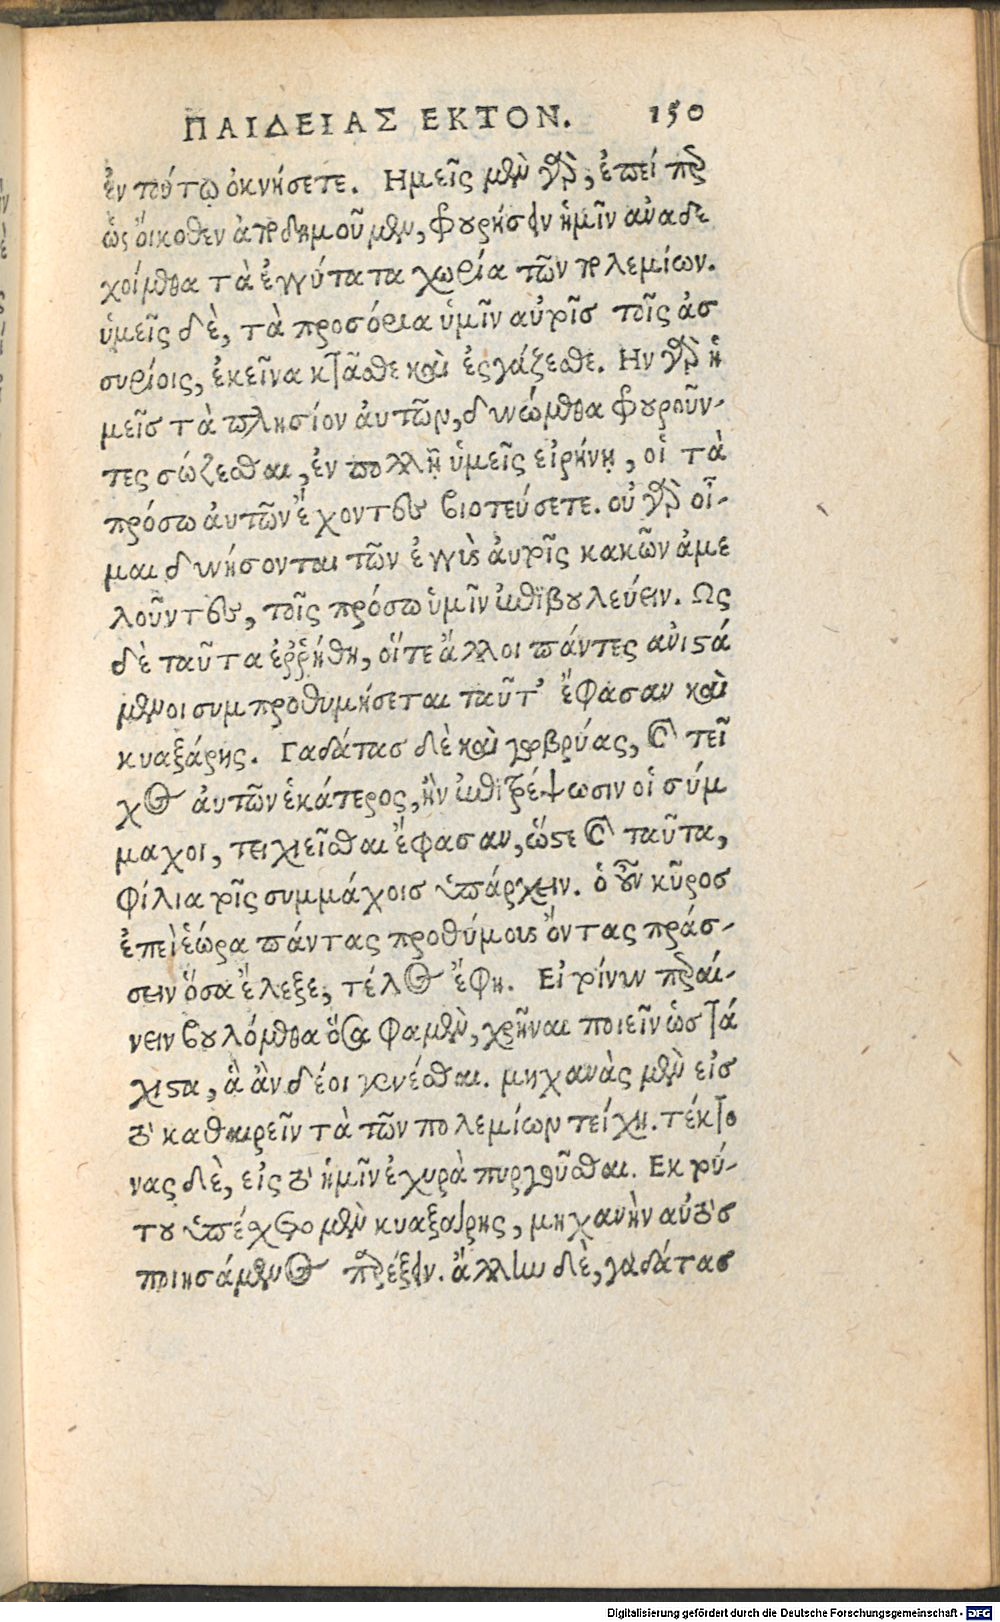 ΠΑΙΔΕΙΑΣ ΕΚΤΟΝ. 150
ἐν τούτῳ ὀκνήσετε. Ημεῖς μὲν γὰρ, ἐπεί περ
ὡς ὄικοθεν ἀποδημοῦμεν, φρουρήσειν ἡμῖν ἀναδε
χοίμεθα τὰ ἐγγύτατα χωρία τῶν πολεμίων.
ὑμεῖς δὲ, τὰ προσόρια ὑμῖν αὐτοῖσ τοῖς ἀσ
συρίοις, ἐκεῖνα κτᾶσθε καὶ ἐργάζεσθε. Ην γὰρ ἡ
μεῖσ τὰ πλησίον ἀυτῶν, δυνώμεθα φρουροῦν-
τες σώζεσθαι, ἐν πολλῇ ὑμεῖς εἰρήνῃ, οἱ τὰ
πρόσω ἀυτῶν ἔχοντες βιοτεύσετε. οὐ γὰρ οἶ-
μαι δυνήσονται τῶν ἐγγὺς ἀυτοῖς κακῶν ἀμε
λοῦντες, τοῖς πρόσω ὑμῖν ἐπιβουλεύειν. Ως
δὲ ταῦτα ἐῤῥήθη, οἵτε ἄλλοι πάντες ἀνιστά
μενοι συμπροθυμήσεται ταῦτ' ἔφασαν καὶ
κυαξάρης. Γαδάτασ δὲ καὶ γωβρύας, καὶ τεῖ
χος ἀυτῶν ἑκάτερος, ἢν ἐπιτρέψωσιν οἱ σύμ
μαχοι, τειχιεῖσθαι ἔφασαν, ὥστε καὶ ταῦτα,
φίλια τοῖς συμμάχοισ ὑπάρχειν. ὁ οὖν κῦροσ
ἐπεὶ ἑώρα πάντας προθύμους ὄντας πράσ-
σειν ὅσα ἔλεξε, τέλος ἔφη. Εἰ τοίνυν περαί-
νειν βουλόμεθα ὅσα φαμὲν, χρῆναι ποιεῖν ὡς τά
χιστα, ἃ ἂν δέοι γενέσθαι. μηχανὰς μὲν εἰσ
τὸ καθαιρεῖν τὰ τῶν πολεμίων τείχη. τέκτο
νας δὲ, εἰς τὸ ἡμῖν ἐχυρὰ πυργοῦσθαι. Εκ τού-
του ὑπέσχετο μὲν κυαξάρης, μηχανὴν αὐτὸσ
ποιησάμενος παρέξειν. ἄλλην δὲ, γαδάτασ
Digitalisierung gefördert durch die Deutsche Forschungsgemeinschaft - DFG